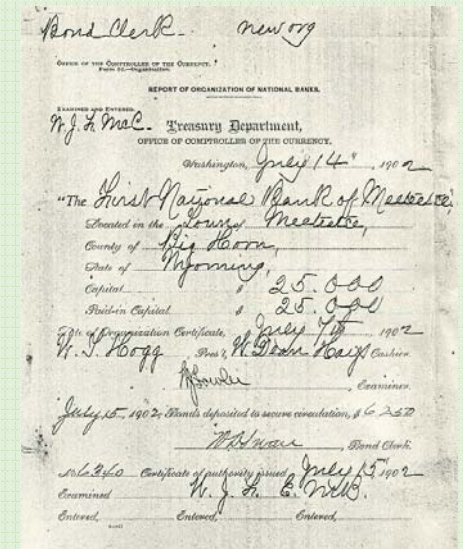 Bond Clerk. new org
OFFICE OF THE COMPTROLLER OF THE CURRENCY.
REPORT OF ORGANIZATION OF NATIONAL BANKS.
EXAMINED AND ENTERED.
W. J. H. McC. Treasury Department,
OFFICE OF COMPTROLLER OF THE CURRENCY.
Washington, July 14", 1902
"The First National Bank of Meeteetse,
Located in the Town of Meeteetse,
County of Big Horn,
State of Wyoming,
Capital $ 25.000
Paid-in Capital $ 25.000
Date of Organization Certificate, July 7th 1902
Hogg Pres't, W. Dean Hays Cashier.
Examiner.
July 15, 1902, Bonds deposited to secure circulation, $ 6250
Bond Clerk.
No 6340 Certificate of authority issued July 15 1902
Examined
Entered, Entered, Entered,